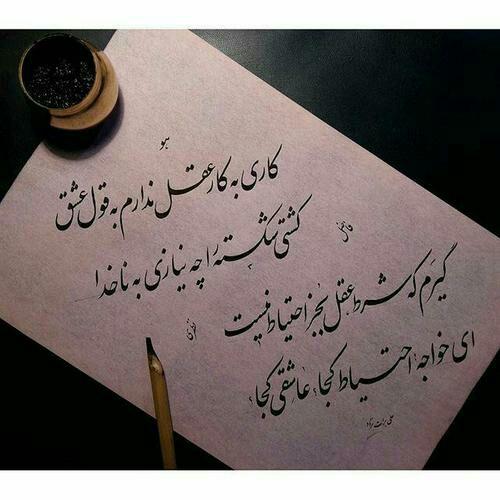 هو
کاری به کار عقل ندارم به قول عشق
کشتی شکسته را چه نیازی به ناخدا
فاضل
گیرم که شرط عقل بجز احتیاط نیست
نظری
ای خواجه احتیاط کجا، عاشقی کجا؟